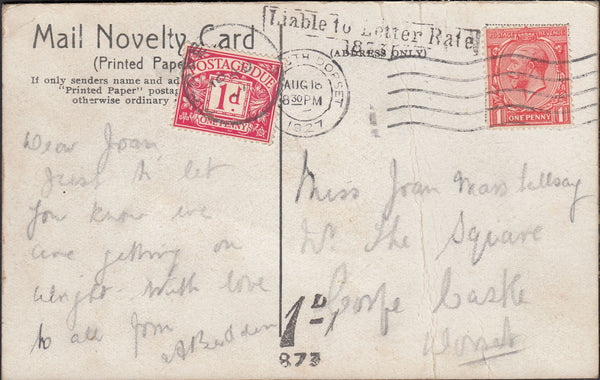 Liable to Letter Rate
Mail Novelty Card
(Printed Pape
(ADDRESS ONLY)
If only senders name and ad
"Printed Paper" posta
otherwise ordinary
POSTAGE DUE
1d
ONE PENNY
DORSET
AUG 18
8 30 PM
1927
POSTAGE REVENUE
1 ONE PENNY 1
Dear Joan,
Just to let
you know we
are getting on
alright with love
to all from
A Budden
Miss Joan
The Square
Corfe Castle
Dorset
1D
873